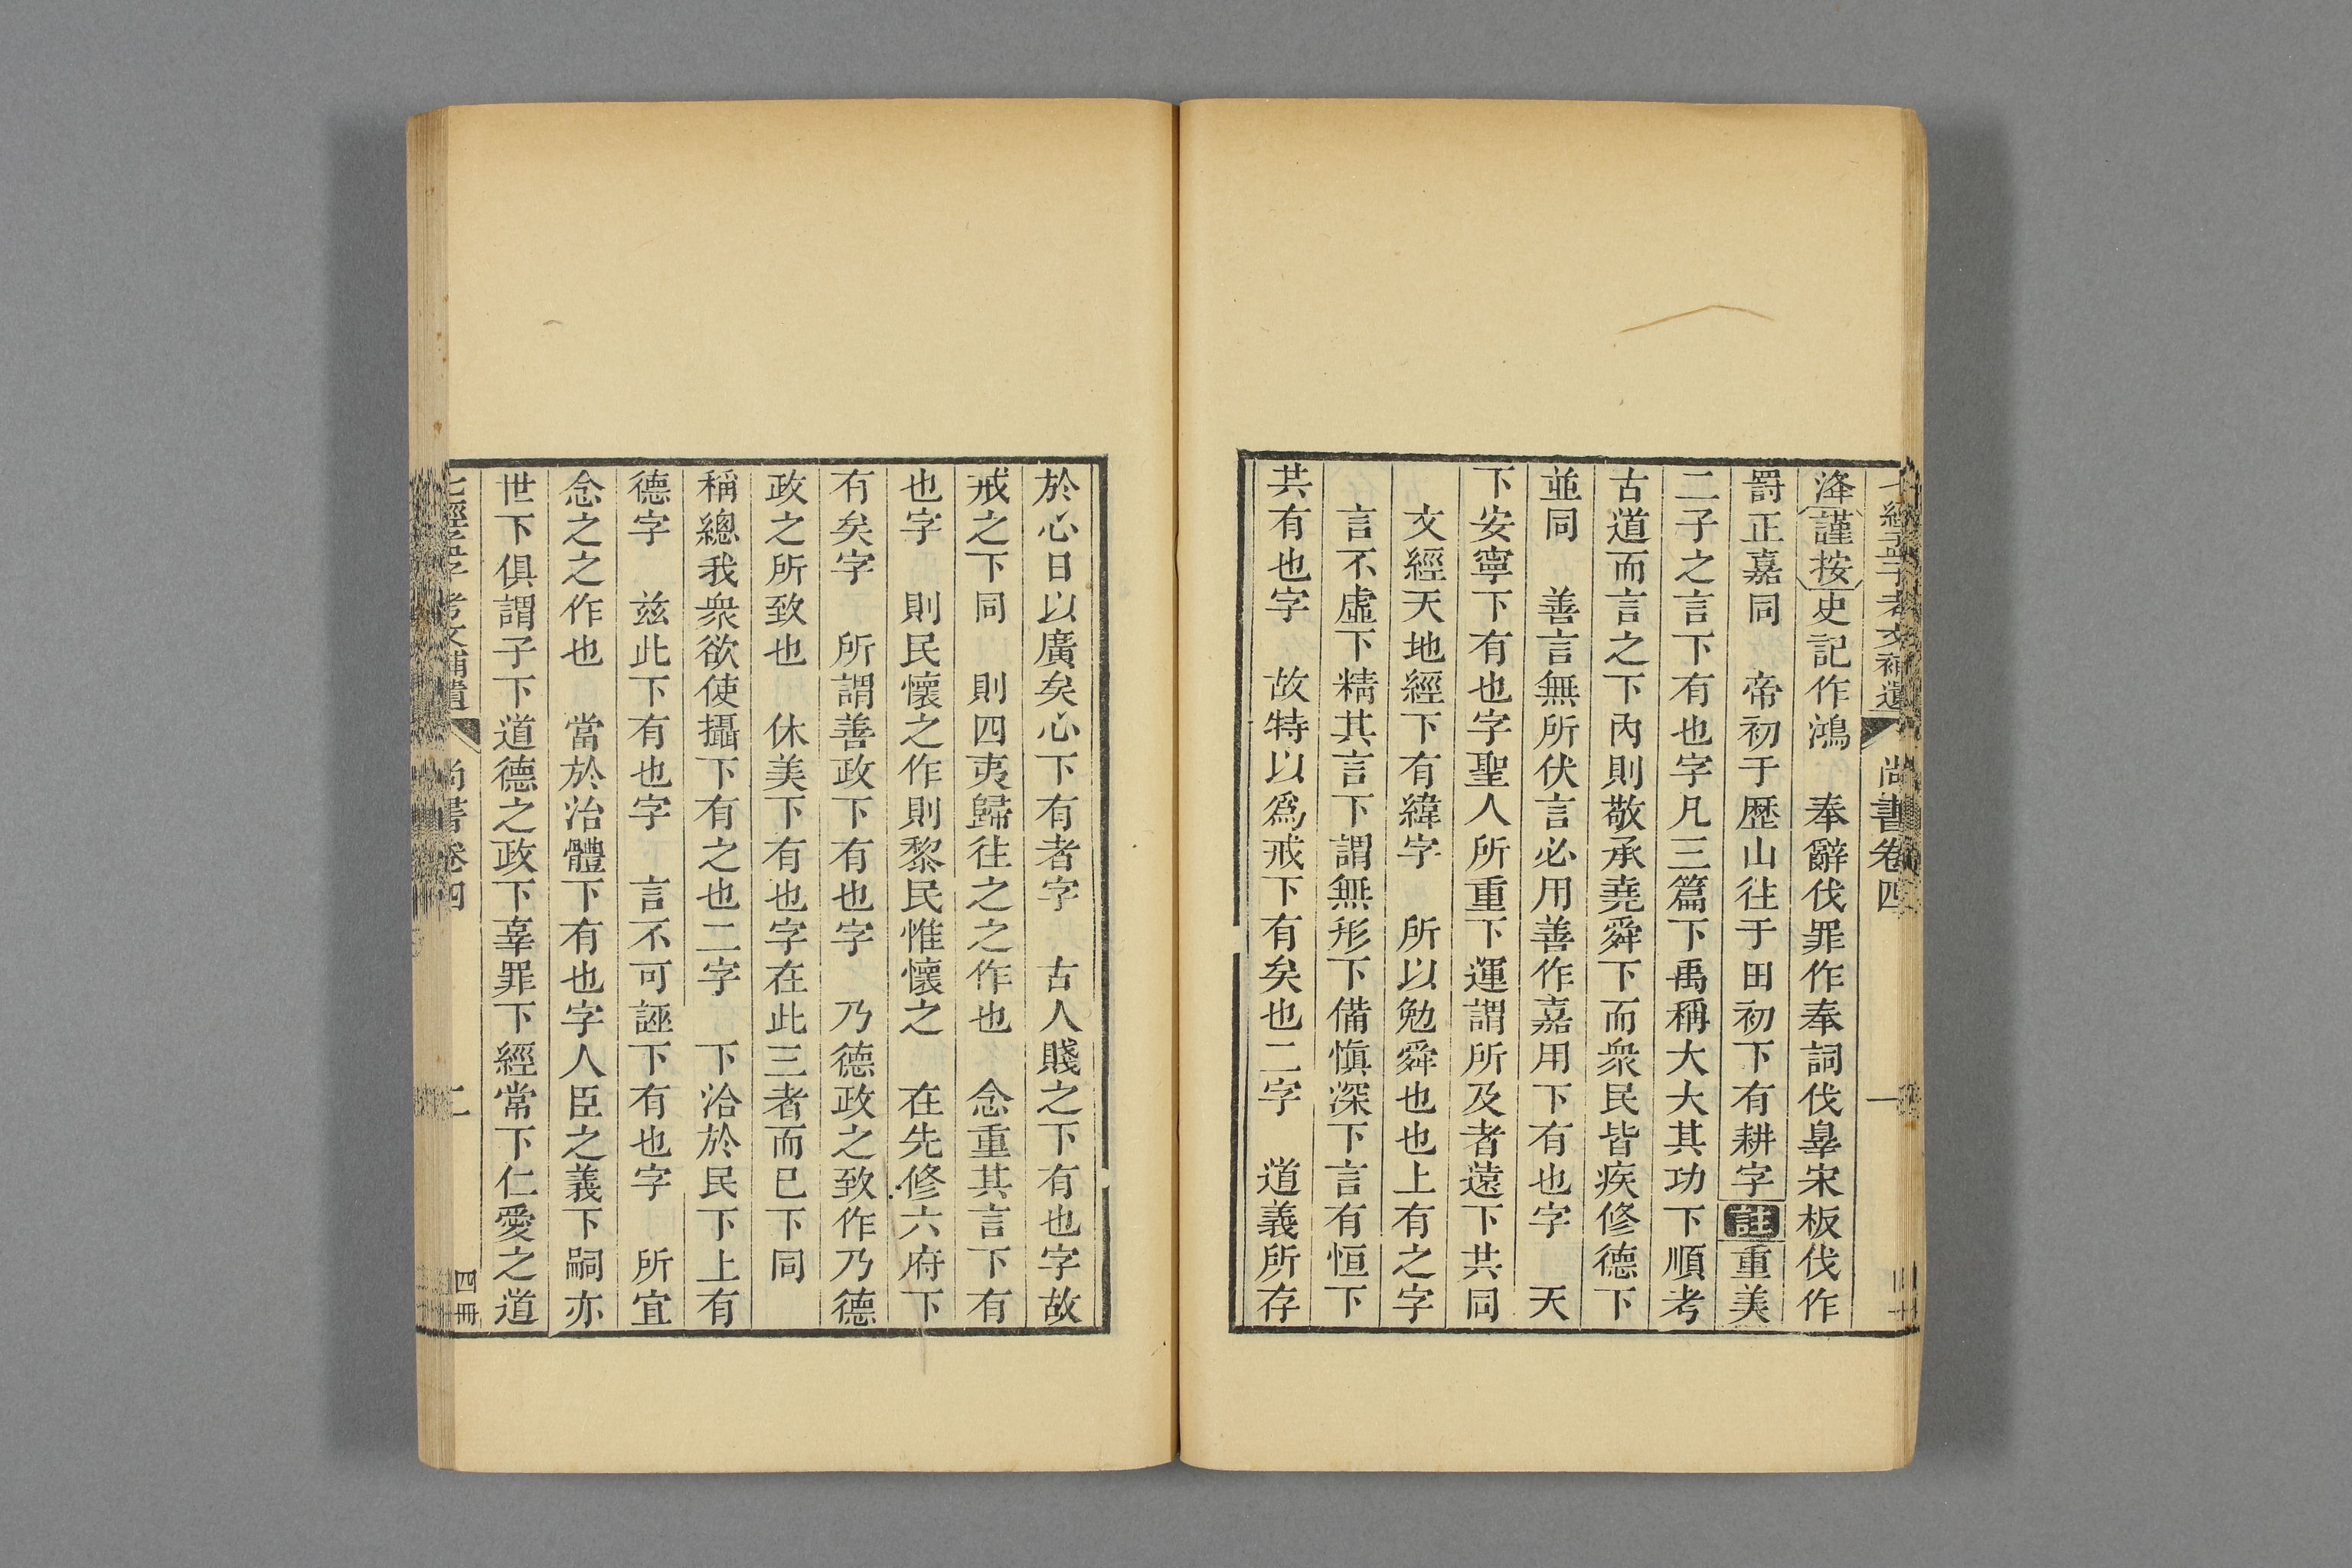 七經孟子考文補遺 尚書卷四 一
洚謹按史記作鴻 奉辭伐罪作奉詞伐辠宋板伐作
罸正嘉同 帝初于歷山往于田初下有耕字註重美
二子之言下有也字凡三篇下禹稱大大其功下順考
古道而言之下內則敬承堯舜下而衆民皆疾修德下
並同 善言無所伏言必用善作嘉用下有也字 天
下安寧下有也字聖人所重下運謂所及者遠下共同
文經天地經下有緯字 所以勉舜也也上有之字
言不虛下精其言下謂無形下備愼深下言有恒下
共有也字 故特以爲戒下有矣也二字 道義所存
於心日以廣矣心下有者字 古人賤之下有也字故
戒之下同 則四夷歸往之之作也 念重其言下有
也字 則民懷之作則黎民惟懷之 在先修六府下
有矣字 所謂善政下有也字 乃德政之致作乃德
政之所致也 休美下有也字在此三者而已下同
稱總我衆欲使攝下有之也二字 下洽於民下上有
德字 兹此下有也字 言不可誣下有也字 所宜
念之之作也 當於治體下有也字人臣之義下嗣亦
世下俱謂子下道德之政下辜罪下經常下仁愛之道
七經孟子考文補遺 尚書卷四 二 四冊